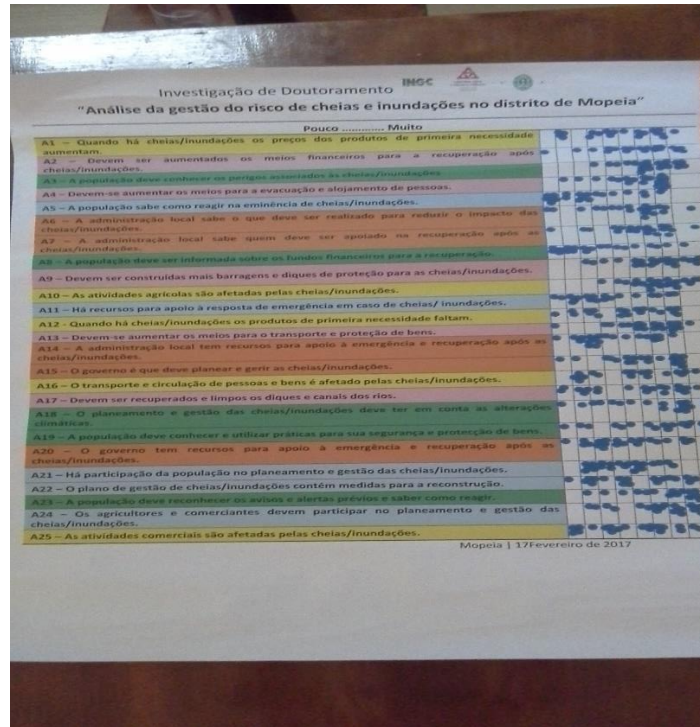 Investigação de Doutoramento
INGC
"Análise da gestão do risco de cheias e inundações no distrito de Mopeia"
Pouco ............ Muito
A1 – Quando há cheias/inundações os preços dos produtos de primeira necessidade
aumentam.
A2 – Devem ser aumentados os meios financeiros para a recuperação após
cheias/inundações.
A3 – A população deve conhecer os perigos associados às cheias/inundações
A4 – Devem-se aumentar os meios para a evacuação e alojamento de pessoas.
A5 – A população sabe como reagir na eminência de cheias/inundações.
A6 – A administração local sabe o que deve ser realizado para reduzir o impacto das
cheias/inundações.
A7 – A administração local sabe quem deve ser apoiado na recuperação após as
cheias/inundações.
A8 – A população deve ser informada sobre os fundos financeiros para a recuperação.
A9 – Devem ser construídas mais barragens e diques de proteção para as cheias/inundações.
A10 – As atividades agrícolas são afetadas pelas cheias/inundações.
A11 – Há recursos para apoio à resposta de emergência em caso de cheias/ inundações.
A12 - Quando há cheias/inundações os produtos de primeira necessidade faltam.
A13 – Devem-se aumentar os meios para o transporte e proteção de bens.
A14 – A administração local tem recursos para apoio à emergência e recuperação após as
cheias/inundações.
A15 – O governo é que deve planear e gerir as cheias/inundações.
A16 – O transporte e circulação de pessoas e bens é afetado pelas cheias/inundações.
A17 – Devem ser recuperados e limpos os diques e canais dos rios.
A18 – O planeamento e gestão das cheias/inundações deve ter em conta as alterações
climáticas.
A19 – A população deve conhecer e utilizar práticas para sua segurança e protecção de bens.
A20 – O governo tem recursos para apoio à emergência e recuperação após as
cheias/inundações.
A21 – Há participação da população no planeamento e gestão das cheias/inundações.
A22 – O plano de gestão de cheias/inundações contêm medidas para a reconstrução.
A23 – A população deve reconhecer os avisos e alertas prévios e saber como reagir.
A24 – Os agricultores e comerciantes devem participar no planeamento e gestão das
cheias/inundações.
A25 – As atividades comerciais são afetadas pelas cheias/inundações.
Mopeia | 17Fevereiro de 2017